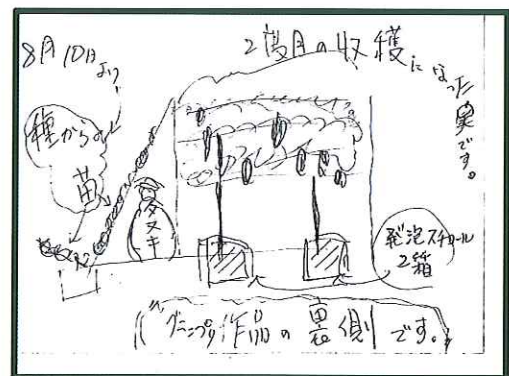 8月10日より
2度目の収穫になった実です。
種からの
苗
タヌキ
発泡スチロール
2箱
グランプリ作品の裏側です。